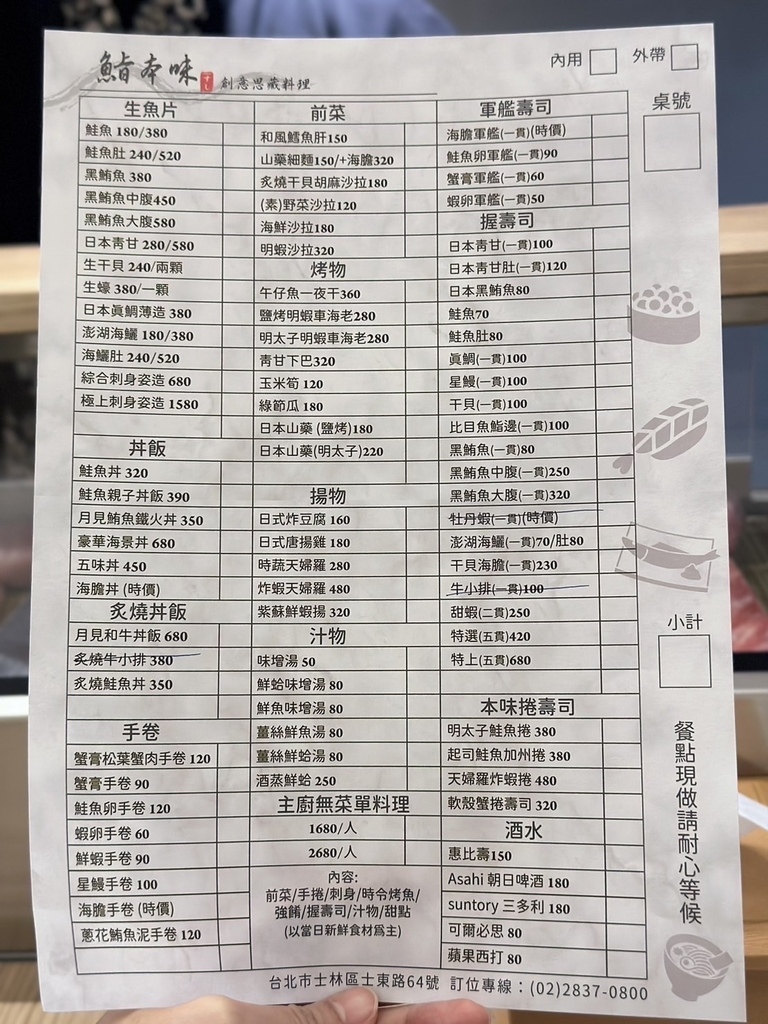 鮨本味 すし 創意思藏料理
內用 外帶
桌號
生魚片
鮭魚 180/380
鮭魚肚 240/520
黑鮪魚 380
黑鮪魚中腹450
黑鮪魚大腹580
日本青甘 280/580
生干貝 240/兩顆
生蠔 380/一顆
日本真鯛薄造 380
澎湖海鱺 180/380
海鱺肚 240/520
綜合刺身姿造 680
極上刺身姿造 1580
丼飯
鮭魚丼 320
鮭魚親子丼飯 390
月見鮪魚鐵火丼 350
豪華海景丼 680
五味丼 450
海膽丼 (時價)
炙燒丼飯
月見和牛丼飯 680
炙燒牛小排 380
炙燒鮭魚丼 350
手卷
蟹膏松葉蟹肉手卷 120
蟹膏手卷 90
鮭魚卵手卷 120
蝦卵手卷 60
鮮蝦手卷 90
星鰻手卷 100
海膽手卷 (時價)
蔥花鮪魚泥手卷 120
前菜
和風鱈魚肝150
山藥細麵150/+海膽320
炙燒干貝胡麻沙拉180
(素)野菜沙拉120
海鮮沙拉180
明蝦沙拉320
烤物
午仔魚一夜干360
鹽烤明蝦車海老280
明太子明蝦車海老280
青甘下巴320
玉米筍 120
綠節瓜 180
日本山藥 (鹽烤)180
日本山藥(明太子)220
揚物
日式炸豆腐 160
日式唐揚雞 180
時蔬天婦羅 280
炸蝦天婦羅 480
紫蘇鮮蝦揚 320
汁物
味增湯 50
鮮蛤味增湯 80
鮮魚味增湯 80
薑絲鮮魚湯 80
薑絲鮮蛤湯 80
酒蒸鮮蛤 250
主廚無菜單料理
1680/人
2680/人
內容:
前菜/手捲/刺身/時令烤魚/
強餚/握壽司/汁物/甜點
(以當日新鮮食材為主)
軍艦壽司
海膽軍艦(一貫)(時價)
鮭魚卵軍艦(一貫)90
蟹膏軍艦(一貫)60
蝦卵軍艦(一貫)50
握壽司
日本青甘(一貫)100
日本青甘肚(一貫)120
日本黑鮪魚80
鮭魚70
鮭魚肚80
真鯛(一貫)100
星鰻(一貫)100
干貝(一貫)100
比目魚鮨邊(一貫)100
黑鮪魚(一貫)80
黑鮪魚中腹(一貫)250
黑鮪魚大腹(一貫)320
牡丹蝦(一貫)(時價)
澎湖海鱺(一貫)70/肚80
干貝海膽(一貫)230
牛小排(一貫)100
甜蝦(二貫)250
特選(五貫)420
特上(五貫)680
本味捲壽司
明太子鮭魚捲 380
起司鮭魚加州捲 380
天婦羅炸蝦捲 480
軟殼蟹捲壽司 320
酒水
惠比壽150
Asahi 朝日啤酒 180
suntory 三多利 180
可爾必思 80
蘋果西打 80
小計
餐點現做請耐心等候
台北市士林區士東路64號 訂位專線：(02)2837-0800